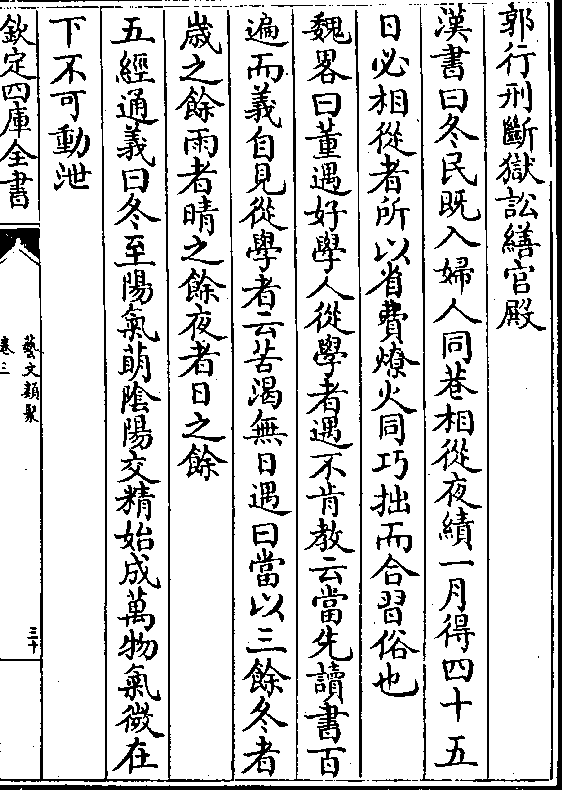 郭行刑斷獄訟繕官殿
漢書曰冬民既入婦人同巷相從夜績一月得四十五
日必相從者所以省費燎火同巧拙而合習俗也
魏畧曰董遇好學人從學者遇不肯教云當先讀書百
遍而義自見從學者云苦渴無日遇曰當以三餘冬者
歳之餘雨者晴之餘夜者日之餘
五經通義曰冬至陽氣萌陰陽交精始成萬物氣微在
下不可動泄
欽定四庫全書
藝文類聚
卷三
三十